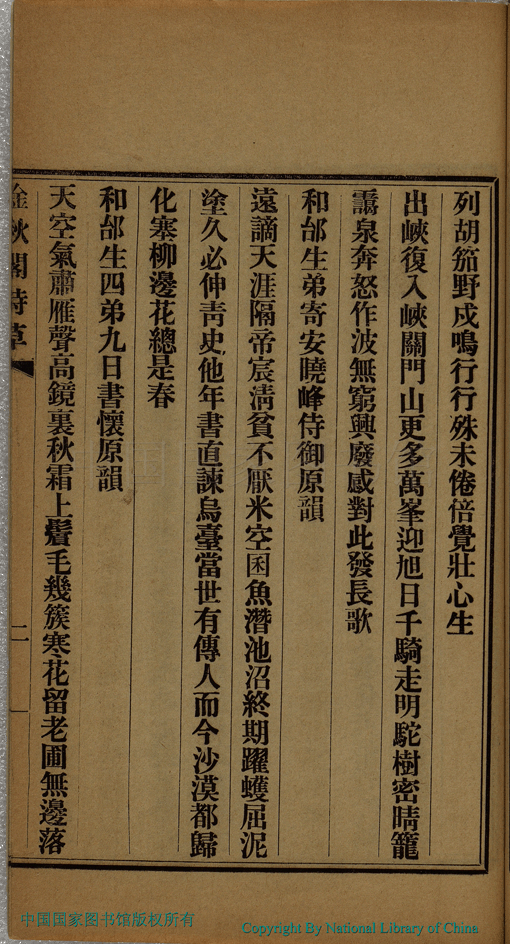 列胡笳野戍鳴行行殊未倦倍覺壯心生
出峽復入峽關門山更多萬峯迎旭日千騎走明駝樹密晴籠
靄泉奔怒作波無窮興廢感對此發長歌
和邰生弟寄安曉峰侍御原韻
遠謫天涯隔帝宸清貧不厭米空囷魚潛池沼終期躍蠖屈泥
塗久必伸靑史他年書直諫烏臺當世有傳人而今沙漠都歸
化寒柳邊花總是春
和邰生四弟九日書懷原韻
天空氣肅雁聲高鏡裏秋霜上鬢毛幾簇寒花留老圃無邊落
秋閣詩草
二
中国国家图书馆版权所有
Copyright By National Library of China